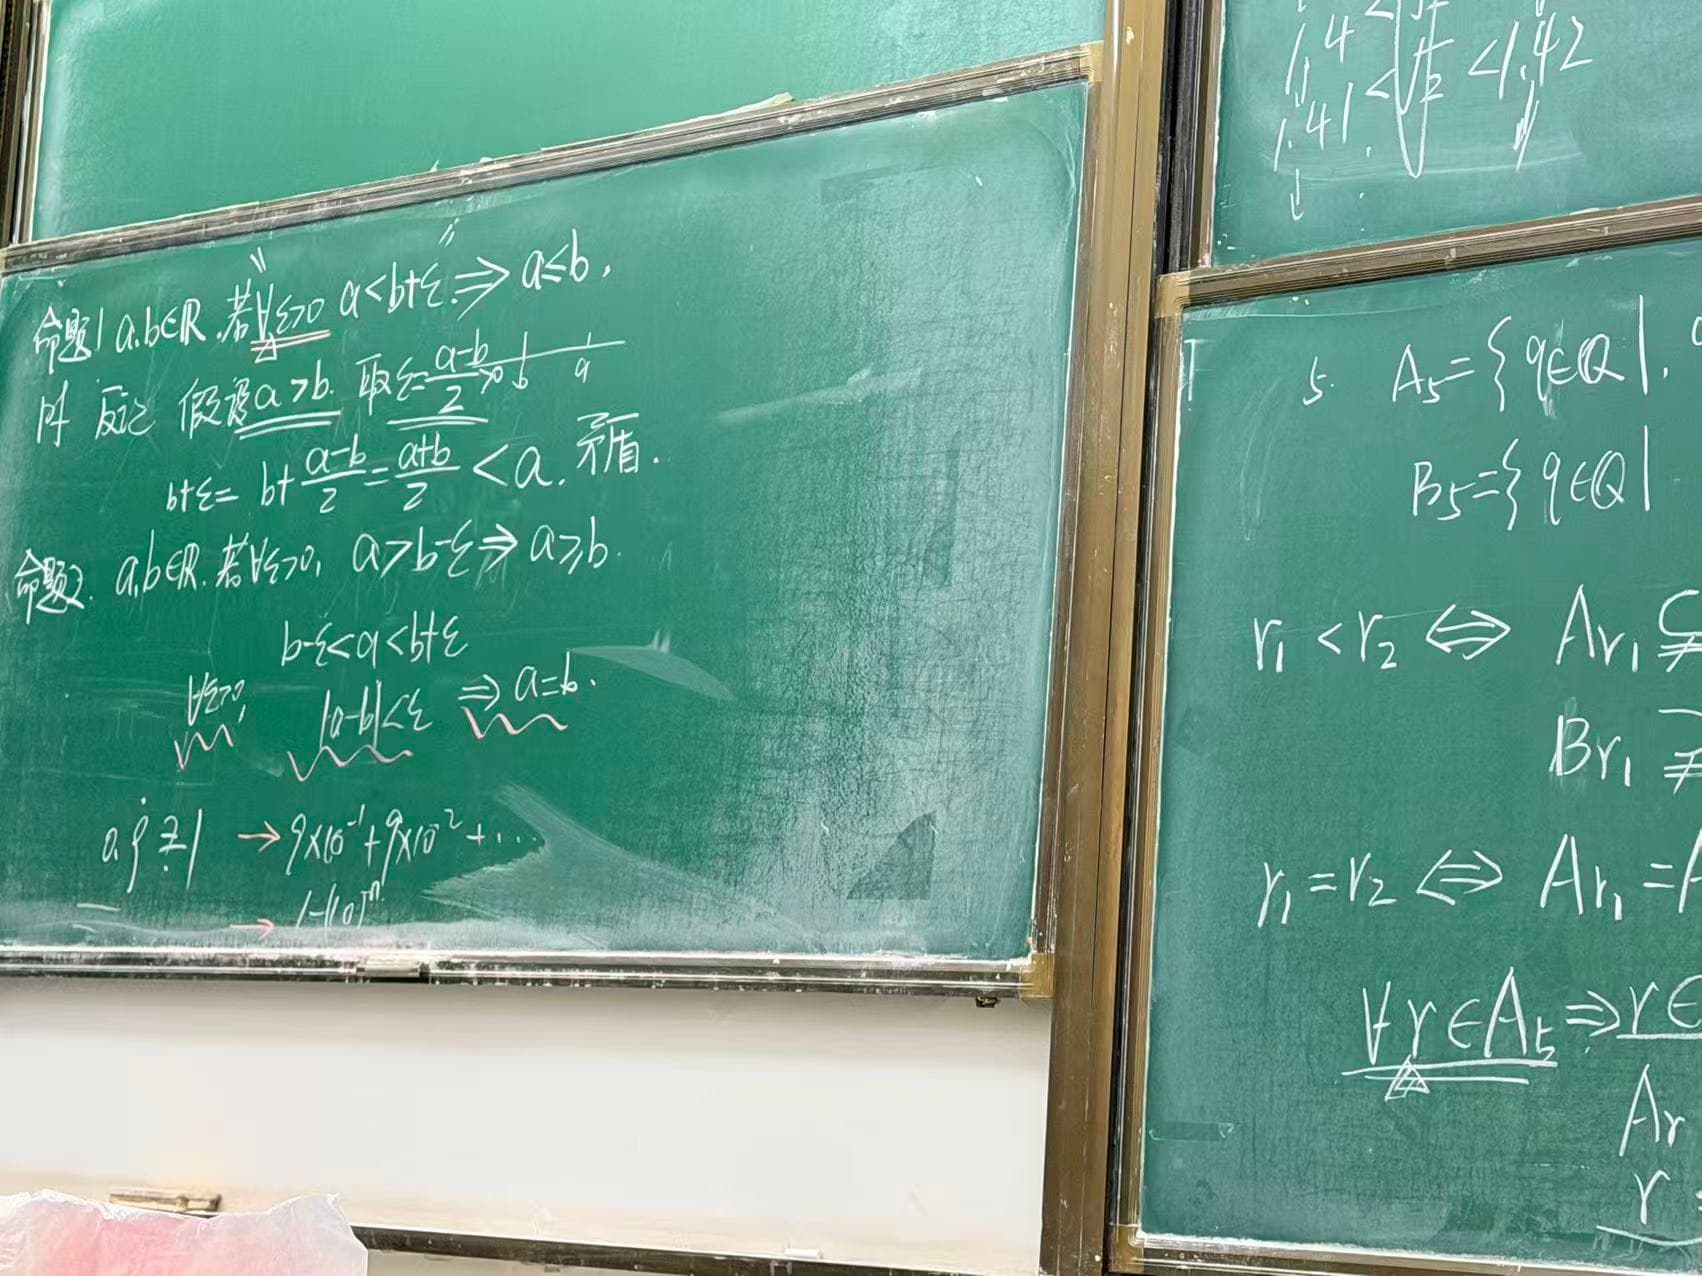 命题1 a,b∈ℝ,若∀ε>0 a<b+ε.⇒ a≤b,
反证 假设a>b. 取ε=(a-b)/2>0 b a
b+ε= b+(a-b)/2=(a+b)/2 <a. 矛盾.
命题2. a,b∈ℝ.若∀ε>0, a>b-ε⇒ a≥b.
b-ε<a<b+ε
∀ε>0, |a-b|<ε ⇒ a=b.
→ 9×10⁻¹+9×10⁻²+...
→
1.4<√2
1.41<√2<1.42
5. A₅={q∈ℚ|
B₅={q∈ℚ|
r₁<r₂⇔ Ar₁⊊
Br₁⊋
r₁=r₂⇔ Ar₁=
∀r∈A₅⇒r∈
Ar
r